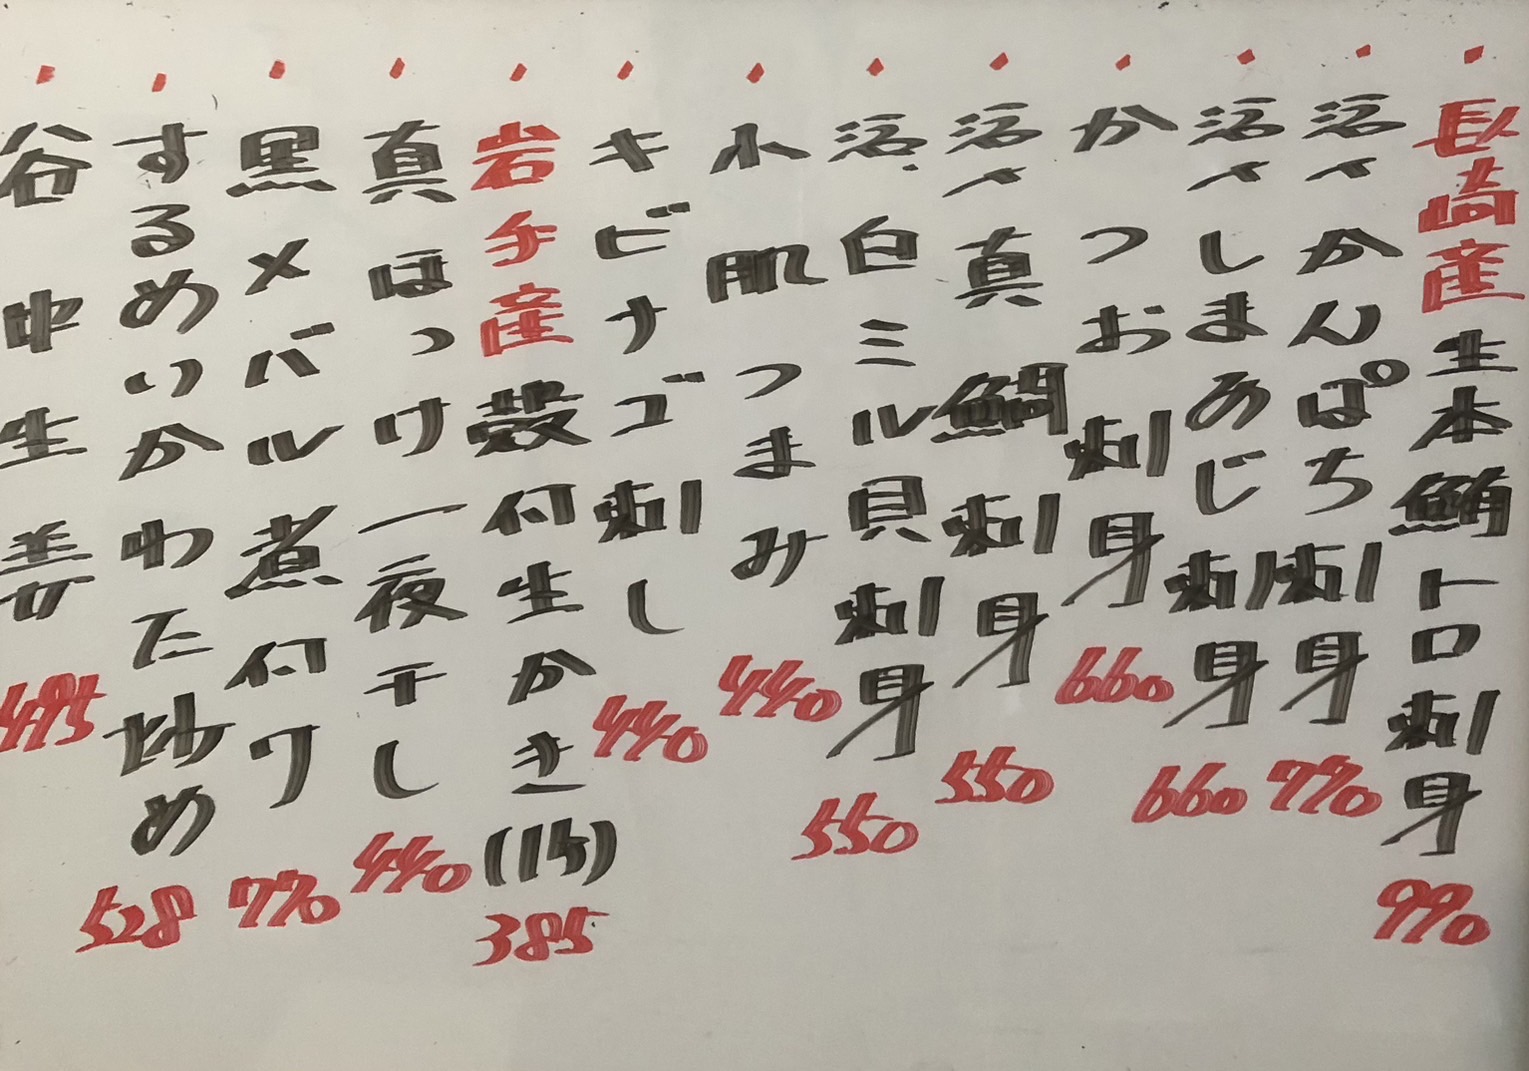 長崎産生本鮪トロ刺身 990
活〆かんぱち刺身 770
活〆しまあじ刺身 660
かつお刺身 660
活〆真鯛刺身 550
活白ミル貝刺身 550
小肌つまみ 440
キビナゴ刺し 440
岩手産殻付生かき(1ヶ) 385
真ほっけ一夜干し 440
黒メバル煮付け 770
するめいかわた炒め 528
谷中生姜 495